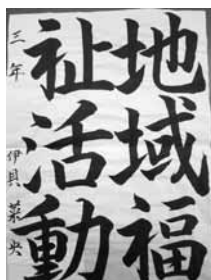 地域福
祉活動
三年 伊貝菜央